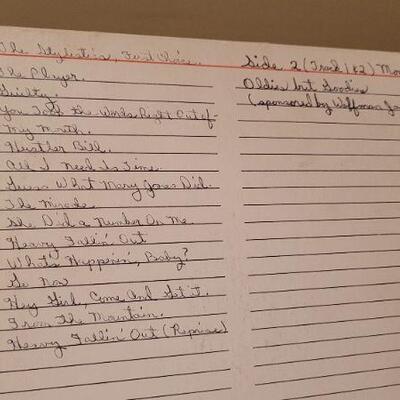 The Stylistics, First Choice.
The Player.
Guilty.
You Took The Words Right Out of
My Mouth.
Hustler Bill.
All I Need Is Time.
Guess What Mary Jones Did.
The Miracle
She Did a Number On Me
Heavy Fallin' Out
What's Happenin', Baby?
Go Now
Hey Girl, Come And Get it.
From The Mountain.
Heavy Fallin' Out (Reprise)
Side 2 (Track 1 & 2)
Oldies but Goodies
(sponsored by Wolfman